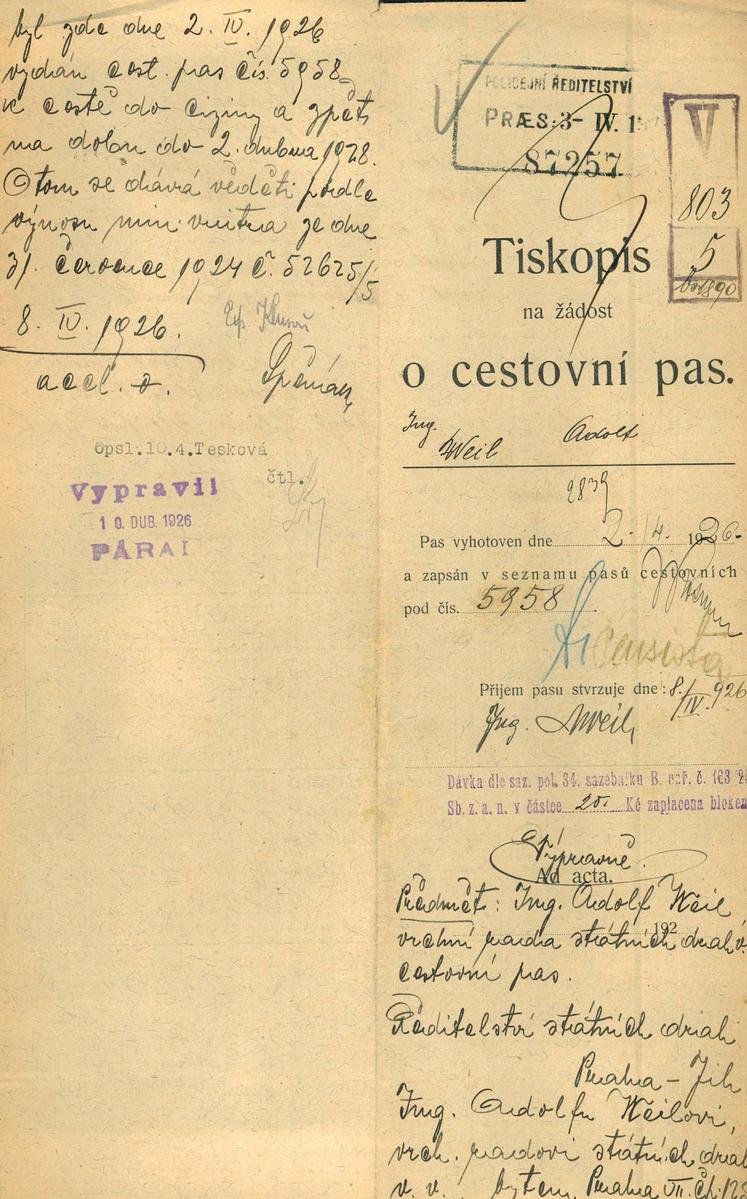 byl zde dne 2. IV. 1926
vydán cest. pas čís. 5958
k cestě do ciziny a zpět
na dobu do 2. dubna 1928.
O tom se dává věděti podle
výnosu min. vnitra ze dne
31. července 1924 č. 52625/5
8. IV. 1926.
Opsl. 10.4. Tesková
čtl.
Vypravil
10. DUB. 1926
PÁRAL
POLICEJNÍ ŘEDITELSTVÍ
PRÆS: 3- IV. 1
87257
V
803
5
Tiskopis
na žádost
o cestovní pas.
Ing. Weil Adolf
2839
Pas vyhotoven dne 2. 4. 1926-
a zapsán v seznamu pasů cestovních
pod čís. 5958.
Pensista
Příjem pasu stvrzuje dne: 8./IV. 926
Ing. AWeil
Dávka dle saz. pol. 34. sazebníku B. nař. č. 163 2
Sb. z. a n. v částce 20.- Kč zaplacena blokem
Výpravně.
Ad acta.
192
Předmět: Ing. Adolf Weil
vrchní rada státních drah v.
cestovní pas.
Ředitelství státních drah
Praha - Jih
Ing. Adolfu Weilovi,
vrch. radovi státních drah
v. v. bytem Praha VII. čp. 128